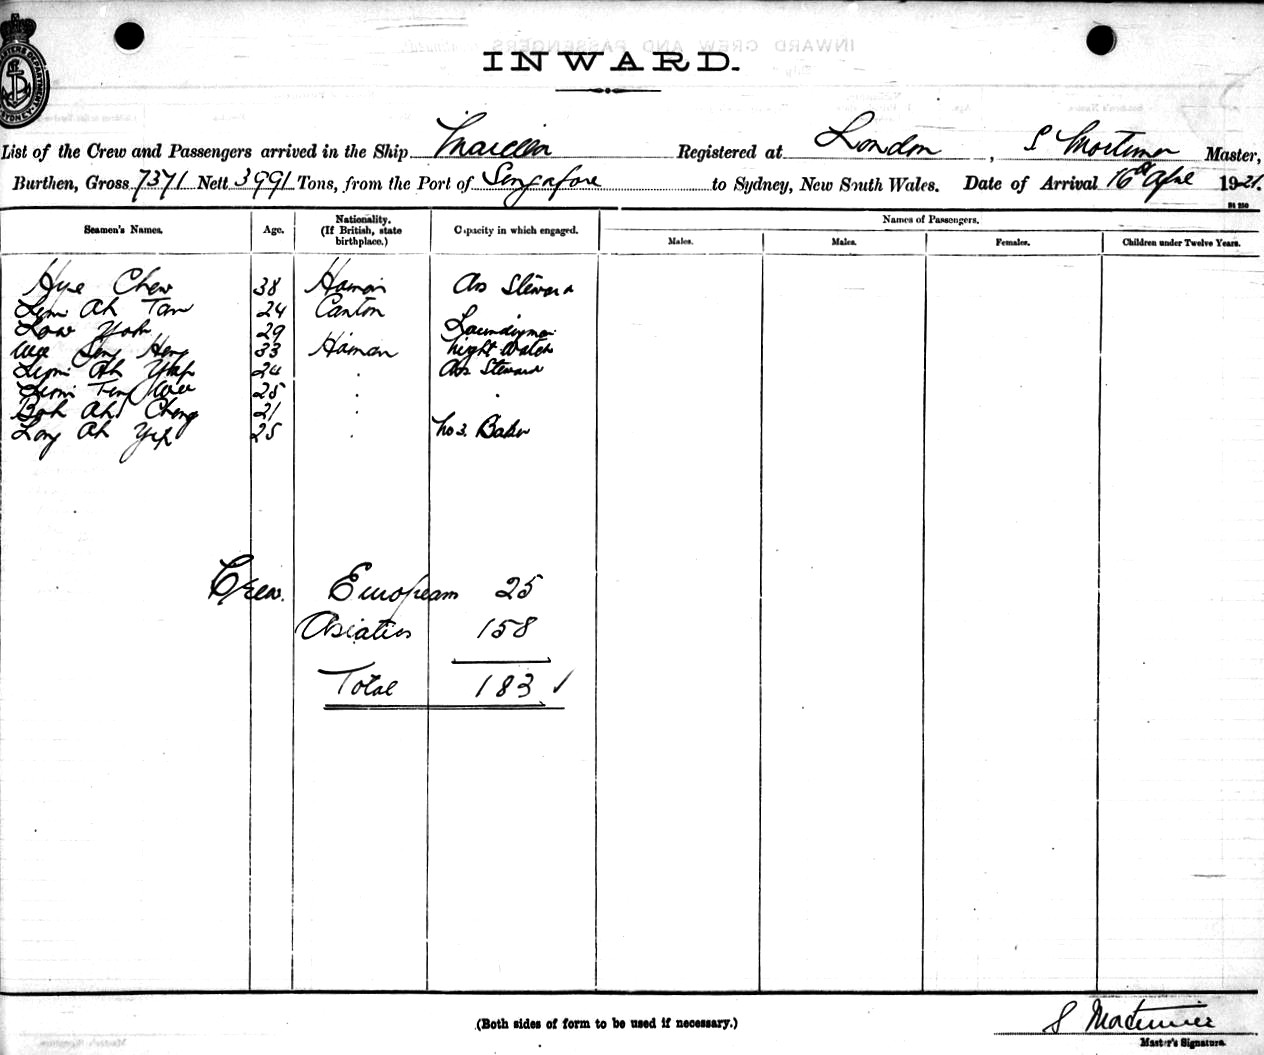 INWARD.
List of the Crew and Passengers arrived in the Ship Marella Registered at London, S Mortimer Master,
Burthen, Gross 7371 Nett 3991 Tons, from the Port of Singapore to Sydney, New South Wales. Date of Arrival 16th April 1921.
Seamen's Names. Age. Nationality. (If British, state birthplace.) Capacity in which engaged. Names of Passengers.
Males. Males. Females. Children under Twelve Years.
Hue Chew 38 Hainan Ass Steward
Lim Ah Tan 24 Canton
Low Yoh 29 Laundryman
Wee Seng Heng 33 Hainan Night Watch
Ah Yap 24 . Ass Steward
Teng Wee 25 . .
Boh Ah Cheng 21 .
Long Ah Yip 25 . No 3. Baker
Crew. European 25
Asiatics 158
Total 183 ✓
(Both sides of form to be used if necessary.)
S Mortimer
Master's Signature.